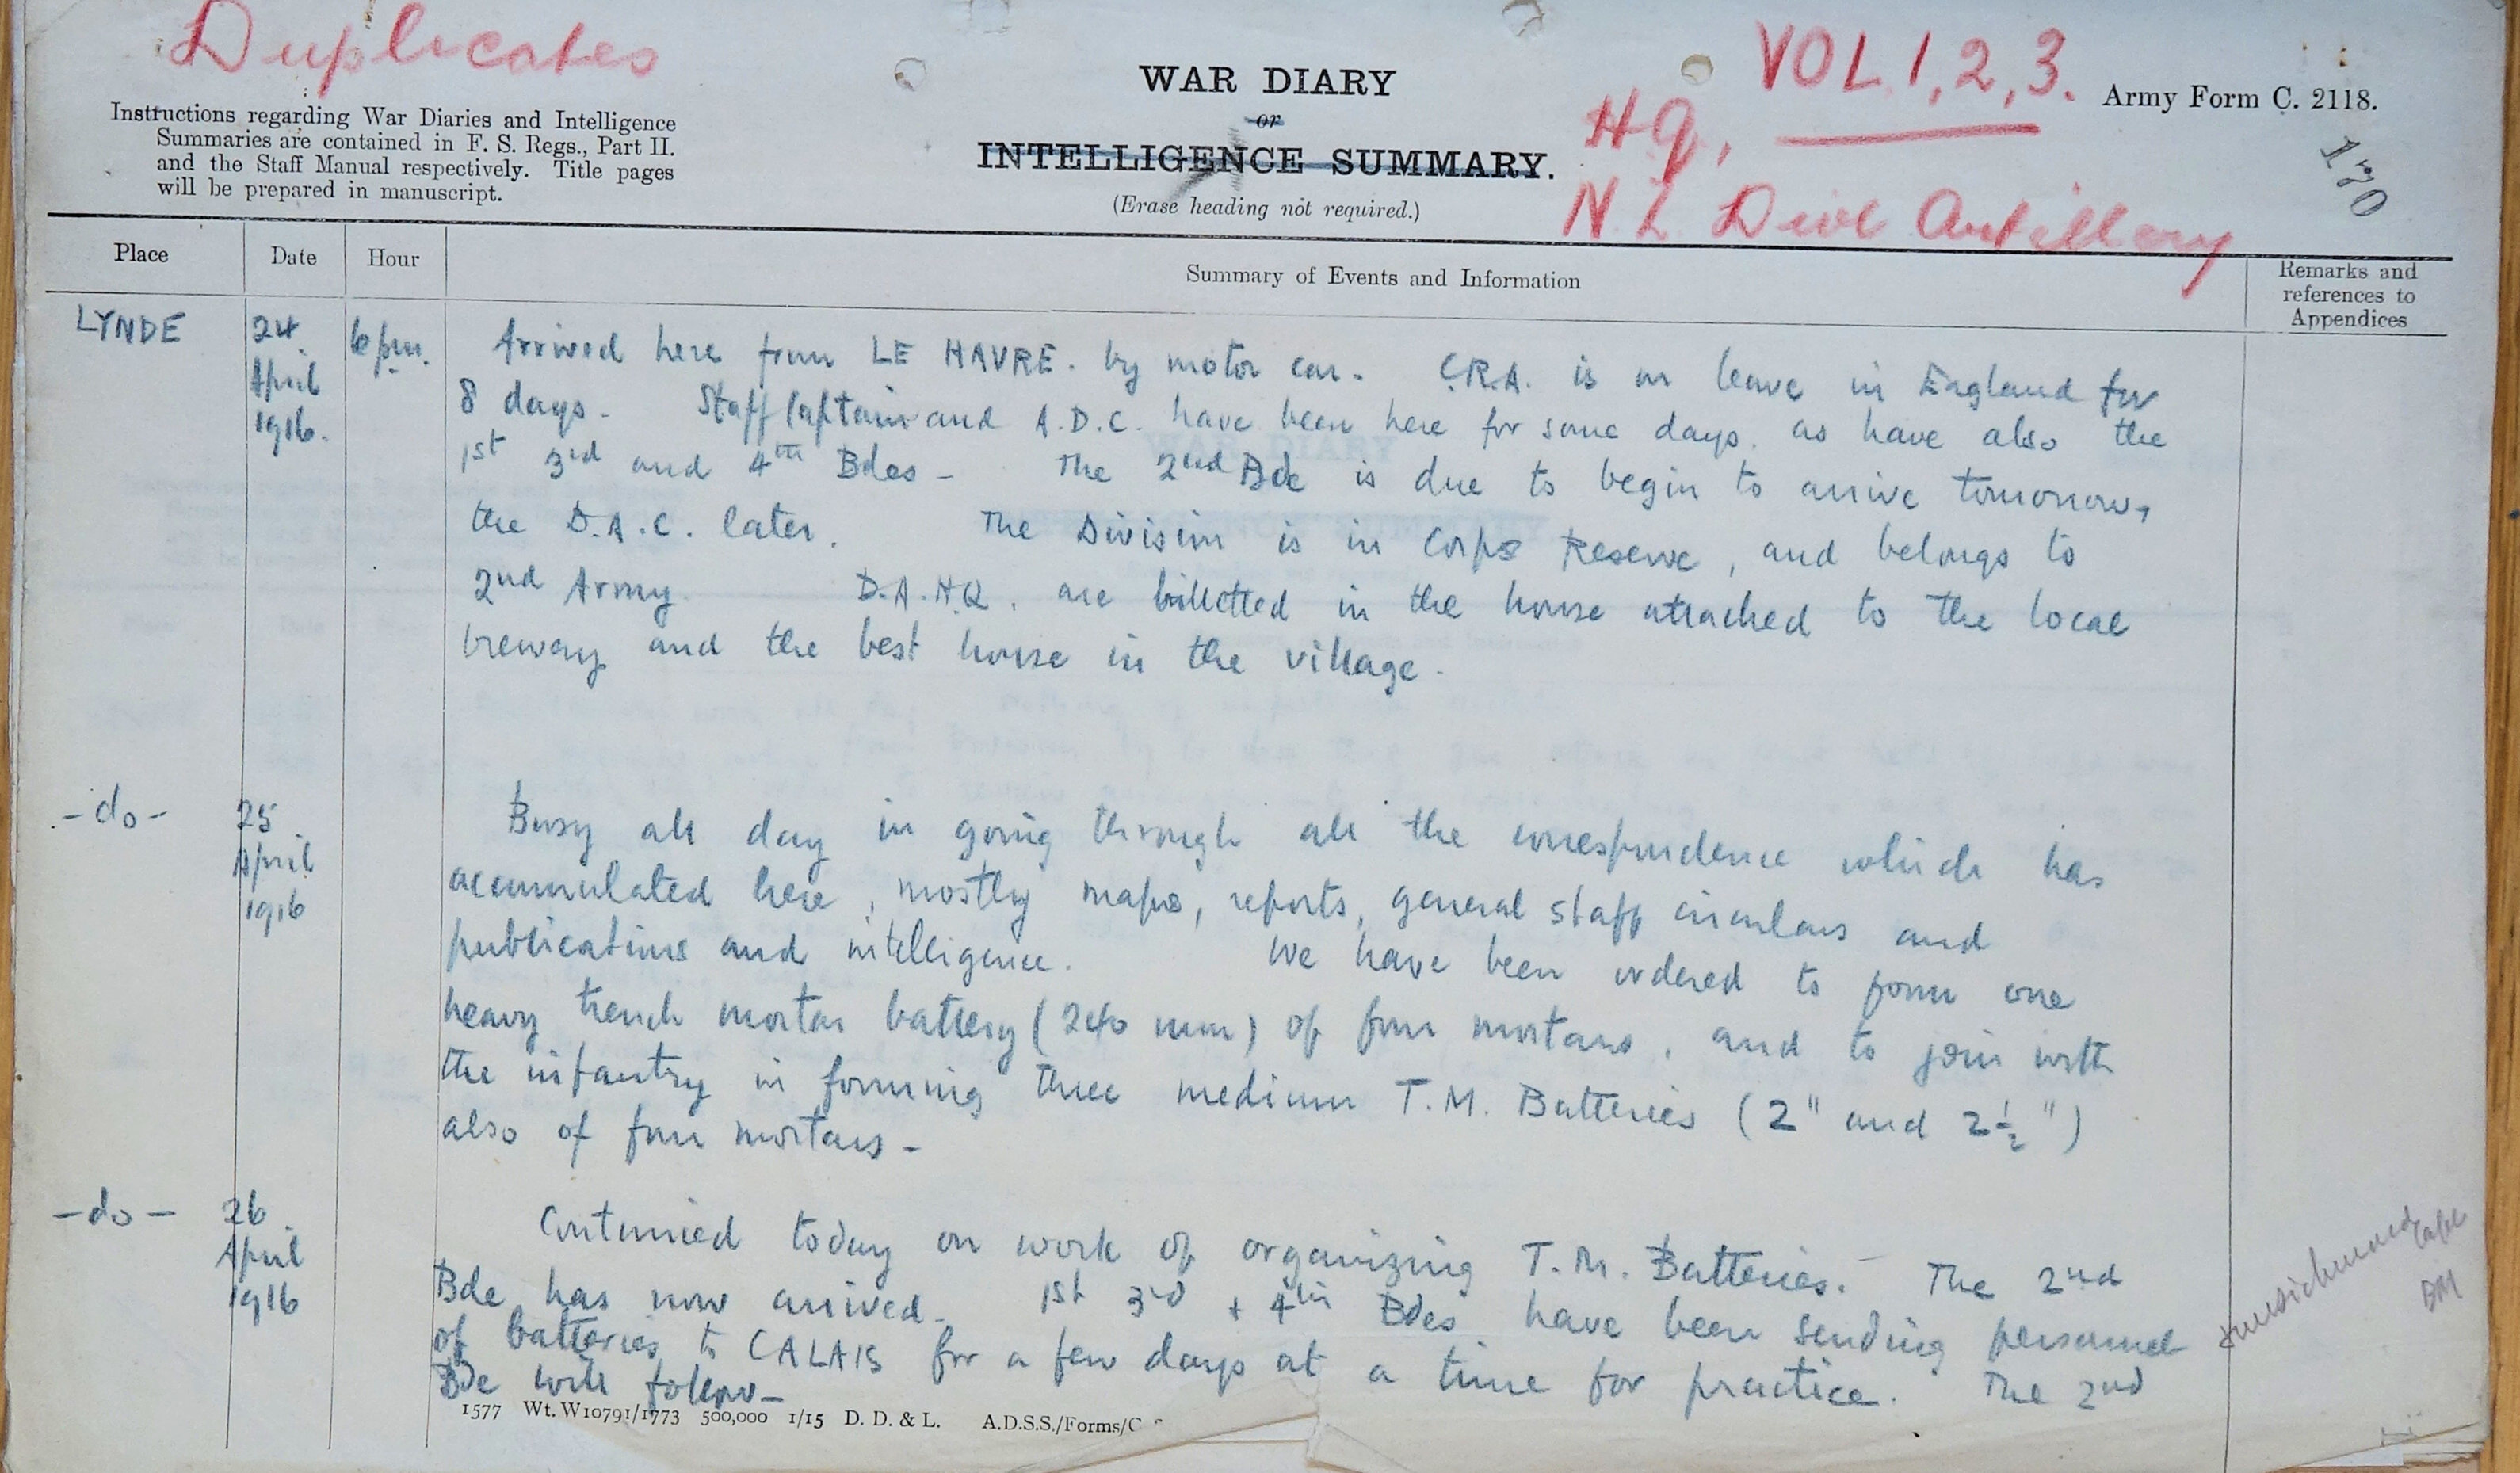 Duplicates
VOL 1, 2, 3.
HQ,
N.Z. Divl Artillery
Army Form C. 2118.
170
Instructions regarding War Diaries and Intelligence
Summaries are contained in F. S. Regs., Part II.
and the Staff Manual respectively. Title pages
will be prepared in manuscript.
WAR DIARY
or
INTELLIGENCE SUMMARY.
(Erase heading not required.)
Place Date Hour Summary of Events and Information Remarks and references to Appendices
LYNDE 24 April 1916. 6 pm.
Arrived here from LE HAVRE. by motor car. C.R.A. is on leave in England for
8 days. Staff Captain and A.D.C. have been here for some days. as have also the
1st 3rd and 4th Bdes - The 2nd Bde is due to begin to arrive tomorrow,
the D.A.C. later. The Division is in Corps Reserve, and belongs to
2nd Army. D.A.H.Q. are billetted in the house attached to the local
brewery and the best house in the village.
-do- 25 April 1916
Busy all day in going through all the correspondence which has
accumulated here, mostly maps, reports, general staff circulars and
publications and intelligence. We have been ordered to form one
heavy trench mortar battery (240 mm) of four mortars, and to join with
the infantry in forming three medium T.M. Batteries (2" and 2½")
also of four mortars -
-do- 26 April 1916
Continued today on work of organizing T.M. Batteries. - The 2nd
Bde has now arrived - 1st 3rd + 4th Bdes have been sending personnel
of batteries to CALAIS for a few days at a time for practice. The 2nd
Bde will follow -
1577 Wt. W10791/1773 500,000 1/15 D. D. & L. A.D.S.S./Forms/C